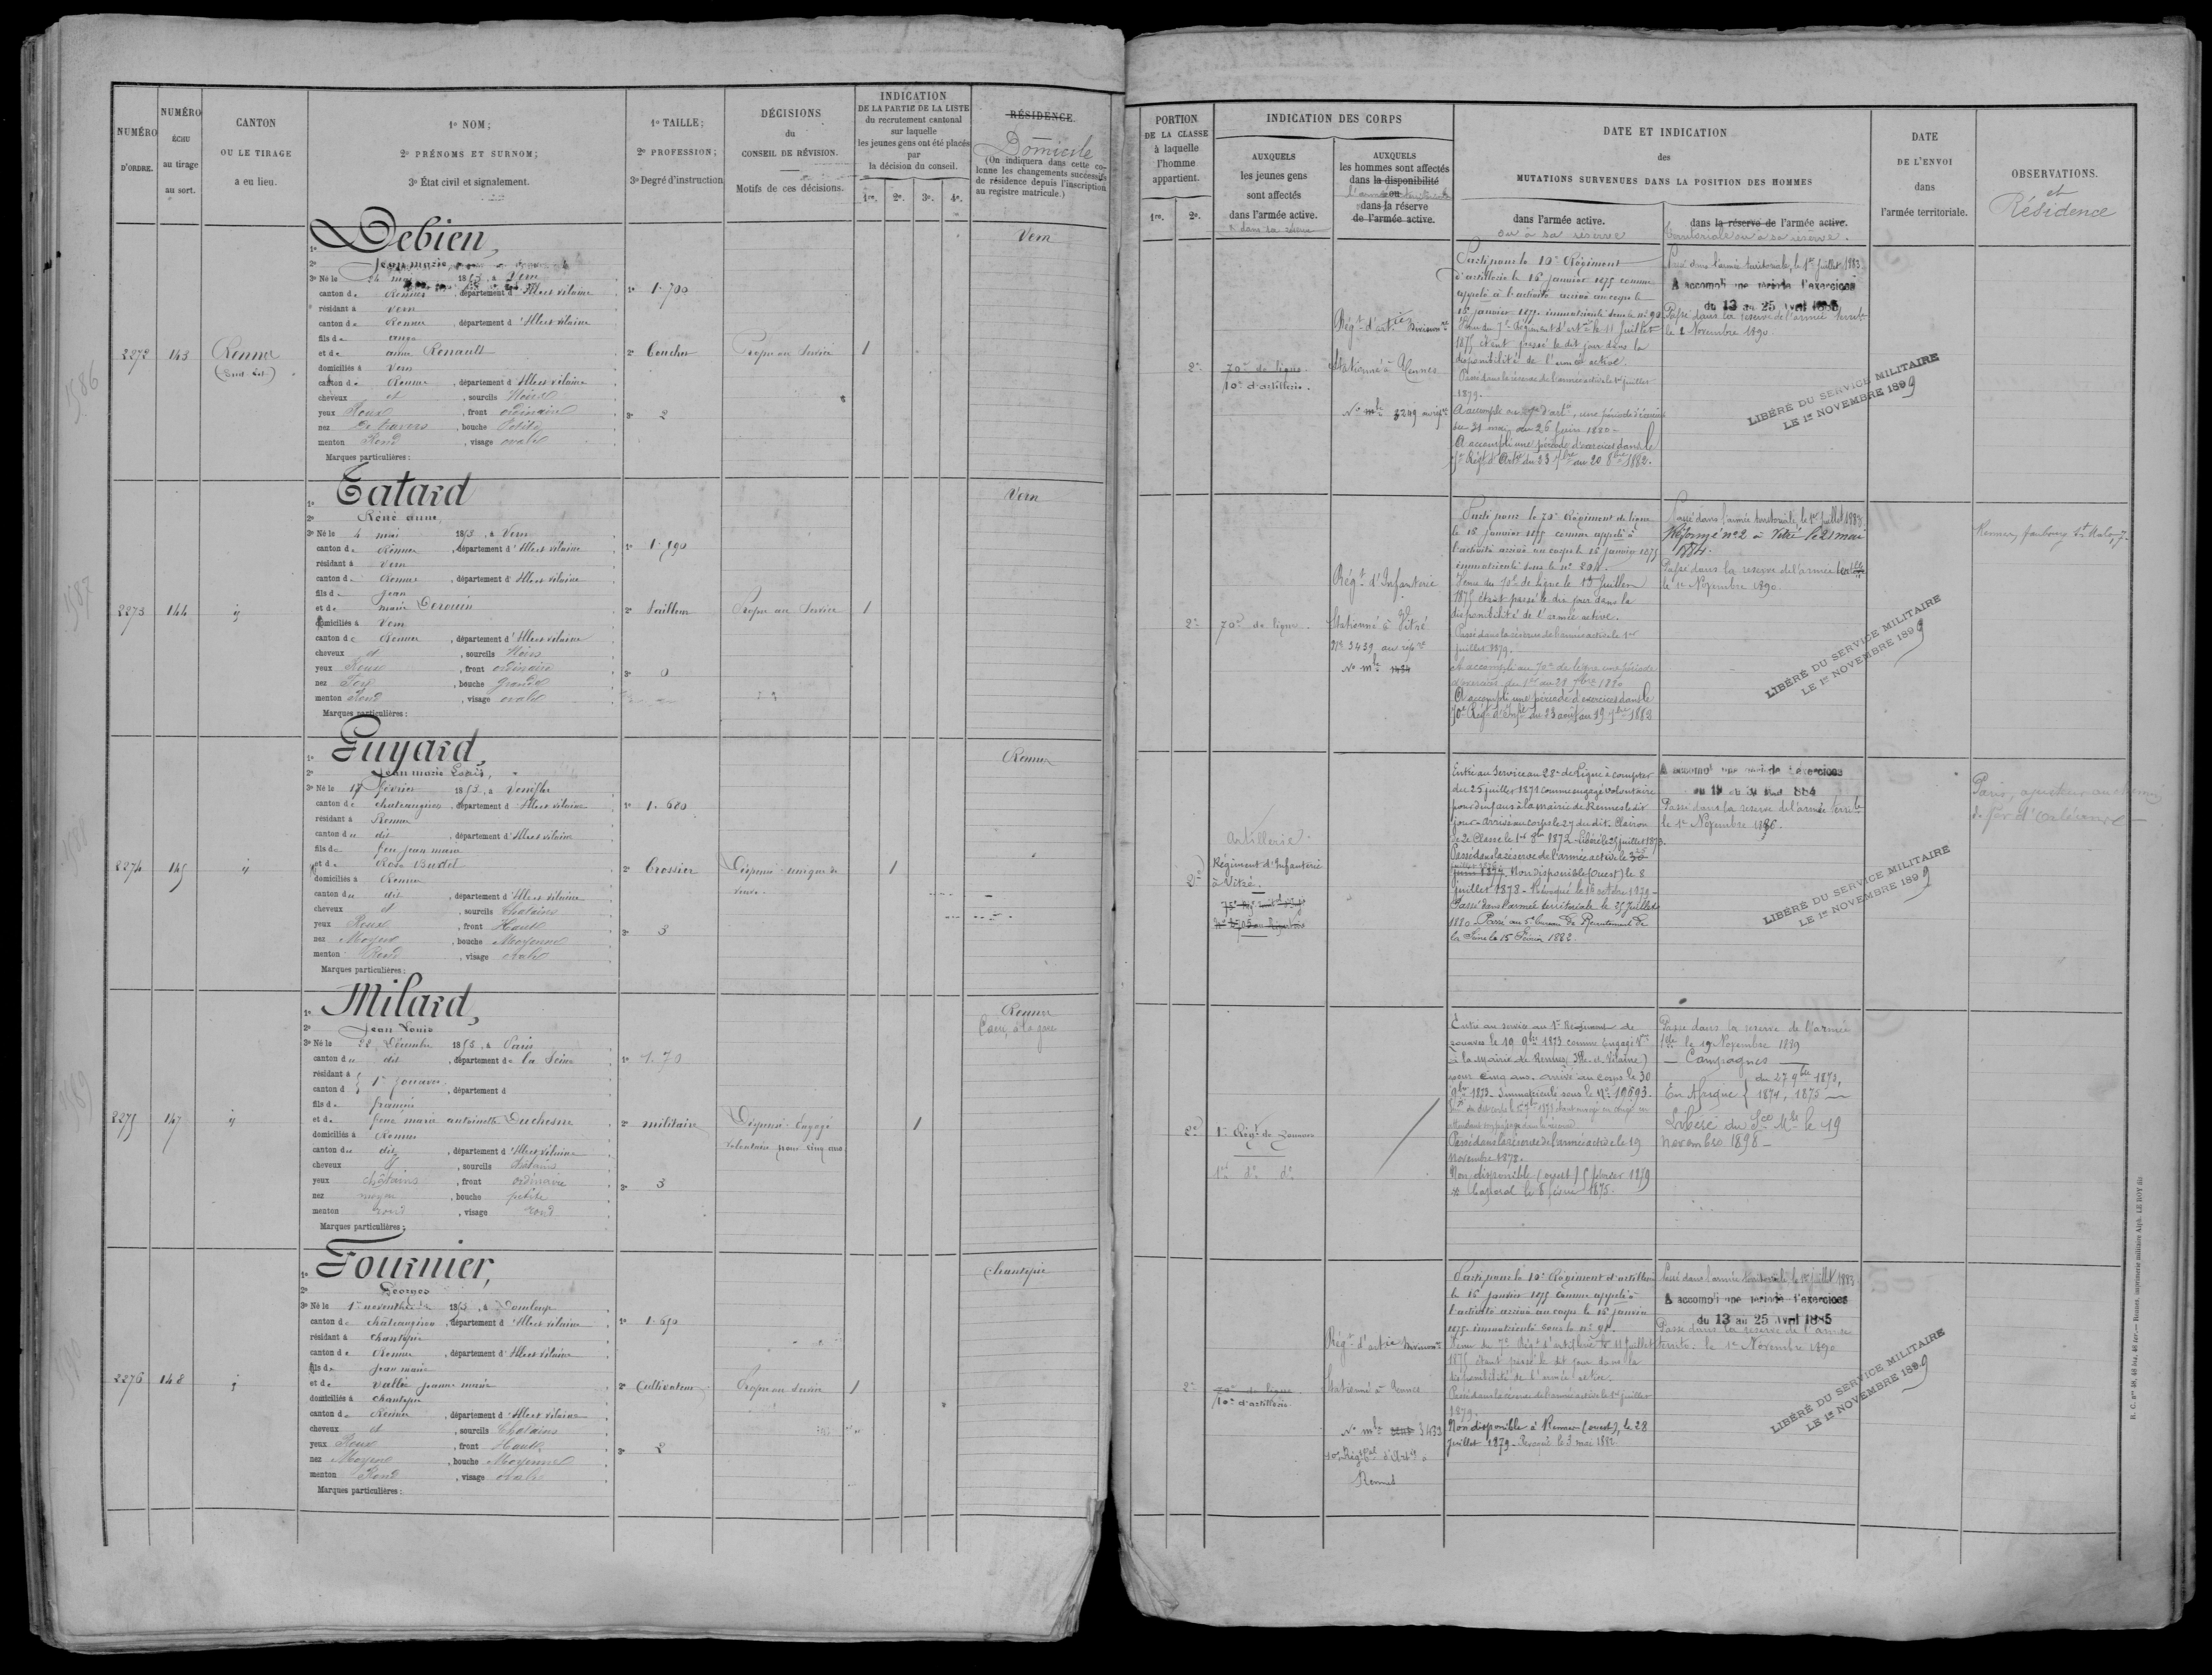 NUMÉRO
D'ORDRE.
NUMÉRO
ÉCHU
au tirage
au sort.
CANTON
OU LE TIRAGE
a eu lieu.
1º NOM;
2º PRÉNOMS ET SURNOM;
3º État civil et signalement.
1º TAILLE;
2º PROFESSION;
3º Degré d'instruction
DÉCISIONS
du
CONSEIL DE RÉVISION.
Motifs de ces décisions.
INDICATION
DE LA PARTIE DE LA LISTE
du recrutement cantonal
sur laquelle
les jeunes gens ont été placés
par
la décision du conseil.
1re. 2e. 3e. 4e.
RÉSIDENCE.
Domicile
(On indiquera dans cette co-
lonne les changements successifs
de résidence depuis l'inscription
au registre matricule.)
2272
143
Rennes
(Sud-Est)
1º Debien,
2º Jean marie
3º Né le 24 mai 1853, à Vern
canton de Rennes, département d'Ille et vilaine
résidant à Vern
canton de Rennes, département d'Ille et vilaine
fils de
et de anne Renault
domiciliés à Vern
canton de Rennes, département d'Ille et vilaine
cheveux et, sourcils Noirs
yeux Roux, front ordinaire
nez De travers, bouche Petite
menton Rond, visage ovale
Marques particulières :
1º 1.700
2º Boucher
3º 2
Propre au Service
1
Vern
2273
144
1º Tatard
2º Réné anne,
3º Né le 4 mai 1853, à Vern
canton de Rennes, département d'Ille et vilaine
résidant à Vern
canton de Rennes, département d'Ille et vilaine
fils de Jean
et de marie Derouin
domiciliés à Vern
canton de Rennes, département d'Ille et vilaine
cheveux et, sourcils Noirs
yeux Roux, front ordinaire
nez Fort, bouche Grande
menton Rond, visage ovale
Marques particulières :
1º 1.590
2º Tailleur
3º 0
Propre au Service
1
Vern
2274
145
1º Guyard,
2º Jean marie Louis,
3º Né le 17 février 1853, à Venèfles
canton de chateaugiron, département d'Ille et vilaine
résidant à Rennes
canton du dit, département d'Ille et vilaine
fils de feu jean marie
et de Rose Burtel
domiciliés à Rennes
canton du dit, département d'Ille et vilaine
cheveux et, sourcils Chatains
yeux Roux, front Haut
nez Moyen, bouche Moyenne
menton Rond, visage ovale
Marques particulières :
1º 1.680
2º
3º 3
Dispensé - unique de
veuve.
1
Rennes
2275
147
1º Milard,
2º Jean Louis
3º Né le 28 Décembre 1853, à Paris
canton du dit, département de la Seine
résidant à
canton d 1er zouaves, département d
fils de françois
et de feue marie antoinette Duchesne
domiciliés à Rennes
canton du dit, département d'Ille et vilaine
cheveux et, sourcils châtains
yeux châtains, front ordinaire
nez moyen, bouche petite
menton rond, visage rond
Marques particulières :
1º 1.70
2º militaire
3º 3
Dispensé. Engagé
volontaire pour cinq ans
1
Rennes
2276
148
1º Fournier,
2º Georges
3º Né le 1er novembre 1853, à Domloup
canton de châteaugiron, département d'Ille et vilaine
résidant à Chantepie
canton de Rennes, département d'Ille et vilaine
fils de Jean marie
et de Vallée jeanne marie
domiciliés à Chantepie
canton de Rennes, département d'Ille et vilaine
cheveux et, sourcils Chatains
yeux Roux, front Haut
nez Moyen, bouche Moyenne
menton Rond, visage ovale
Marques particulières :
1º 1.650
2º Cultivateur
3º 2
Propre au Service
1
Chantepie
1586
1587
1588
1589
PORTION
DE LA CLASSE
à laquelle
l'homme
appartient.
1re. 2e.
INDICATION DES CORPS
AUXQUELS
les jeunes gens
sont affectés
dans l'armée active.
& dans sa réserve
AUXQUELS
les hommes sont affectés
dans la disponibilité
ou
dans la réserve
de l'armée active.
l'armée territoriale
DATE ET INDICATION
des
MUTATIONS SURVENUES DANS LA POSITION DES HOMMES
dans l'armée active.
ou à sa réserve
dans la réserve de l'armée active.
territoriale ou à sa réserve.
DATE
DE L'ENVOI
dans
l'armée territoriale.
OBSERVATIONS.
et
Résidence
2e
70e de ligne.
10e d'artillerie.
Régt d'artie Divisionre
Stationné à Rennes
No mle 3249 au régt
Parti pour le 10e Régiment
d'artillerie le 16 janvier 1875 comme
appelé à l'activité arrivé au corps le
16 janvier 1875. immatriculé sous le nº 90
Venu du 7e Régiment d'artie le 11 juillet
1875 étant passé le dit jour dans la
disponibilité de l'armée active.
Passé dans la réserve de l'armée active le 1er juillet
1879.
A accompli au 7e d'artie, une période d'exercices
du 31 mai au 26 juin 1880 -
A accompli une période d'exercices dans le
7e Régt d'Artie du 23 7bre au 20 8bre 1882.
Passé dans l'armée territoriale, le 1er juillet 1883
A accompli une période d'exercices
du 13 au 25 Avril 1885
Passé dans la réserve de l'armée territle
le 1er Novembre 1890
LIBÉRÉ DU SERVICE MILITAIRE
LE 1er NOVEMBRE 1899
2e
70e de ligne.
Régt d'Infanterie
Stationné à Vitré
No 3439 au régt
No mle 1434
Parti pour le 70e Régiment de ligne
le 16 janvier 1875 comme appelé à
l'activité arrivé au corps le 16 janvier 1875
immatriculé sous le nº 204.
Venu du 70e de ligne le 1er Juillet
1875 étant passé le dit jour dans la
disponibilité de l'armée active.
Passé dans la réserve de l'armée active le 1er
juillet 1879.
A accompli au 70e de ligne une période
d'exercices du 1er au 29 7bre 1880
A accompli une période d'exercices dans le
70e Régt d'Infie du 23 août au 19 7bre 1882
Passé dans l'armée territoriale, le 1er juillet 1883
Réformé nº 2 à Vitré le 21 mai
1884.
Passé dans la réserve de l'armée territle
le 1er Novembre 1890.
LIBÉRÉ DU SERVICE MILITAIRE
LE 1er NOVEMBRE 1899
Rennes, faubourg St Malo, 7.
2e
Artillerie
Régiment d'Infanterie
à Vitré.
Entré au Service au 28e de Ligne à compter
du 25 juillet 1871 comme engagé volontaire
pour deux ans à la mairie de Rennes le dit
jour - Arrivé au corps le 27 du dit. Clairon
de 2e Classe le 1er 8bre 1872 - Libéré le 25 juillet 1873.
Passé dans la réserve de l'armée active le 30
juin 1874. Non disponible (Ouest) le 8
juillet 1878 - Révoqué le 16 octobre 1879 -
Passé dans l'armée territoriale le 25 Juillet
1880. Passé au 5e bureau de Recrutement de
la Seine le 15 Février 1882.
A accompli une période d'exercices
du 19 au 31 Mai 1884
Passé dans la réserve de l'armée territle
le 1er Novembre 1886.
LIBÉRÉ DU SERVICE MILITAIRE
LE 1er NOVEMBRE 1899
Paris,
de fer d'Orléans
2e
1er Régt de Zouaves
1er do. do.
Entré au service au 1er Régiment de
zouaves le 19 9bre 1873 comme Engagé Vre
à la Mairie de Rennes (Ille et Vilaine)
pour cinq ans. Arrivé au corps le 30
9bre 1873. Immatriculé sous le Nº 10693.
Passé dans la réserve de l'armée active le 19
novembre 1878.
Non disponible (ouest) 5 février 1879
* Caporal le 8 février 1875.
Passé dans la réserve de l'armée
tle le 19 Novembre 1889
— Campagnes —
du 27 9bre 1873,
En Afrique { 1874, 1875 —
Libéré du Sce Mre le 19
novembre 1898 -
2e
70e de ligne
10e d'artillerie
Régt d'artie Divisionre
Stationné à Rennes
No mle 3433
10e Régt d'Artie à
Rennes
Parti pour le 10e Régiment d'artillerie
le 16 janvier 1875 comme appelé à
l'activité arrivé au corps le 16 janvier
1875. immatriculé sous le nº 91.
Venu du 7e Régt d'artillerie le 11 juillet
1875 étant passé le dit jour dans la
disponibilité de l'armée active.
Passé dans la réserve de l'armée active le 1er juillet
1879.
Non disponible à Rennes (ouest), le 28
Juillet 1879. le 3 mai 1882
Passé dans l'armée territoriale, le 1er juillet 1883
A accompli une période d'exercices
du 13 au 25 Avril 1885
Passé dans la réserve de l'armée
territle. le 1er Novembre 1890
LIBÉRÉ DU SERVICE MILITAIRE
LE 1er NOVEMBRE 1899